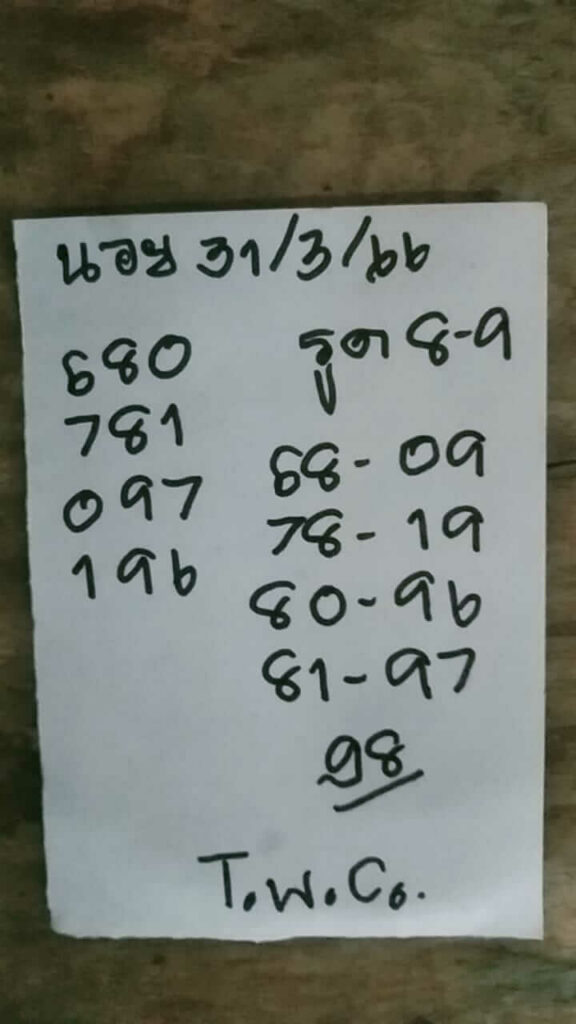 นอย 31/3/66
680
781
097
196
รูด 8-9
68-09
78-19
80-96
81-97
98
T.W.C.